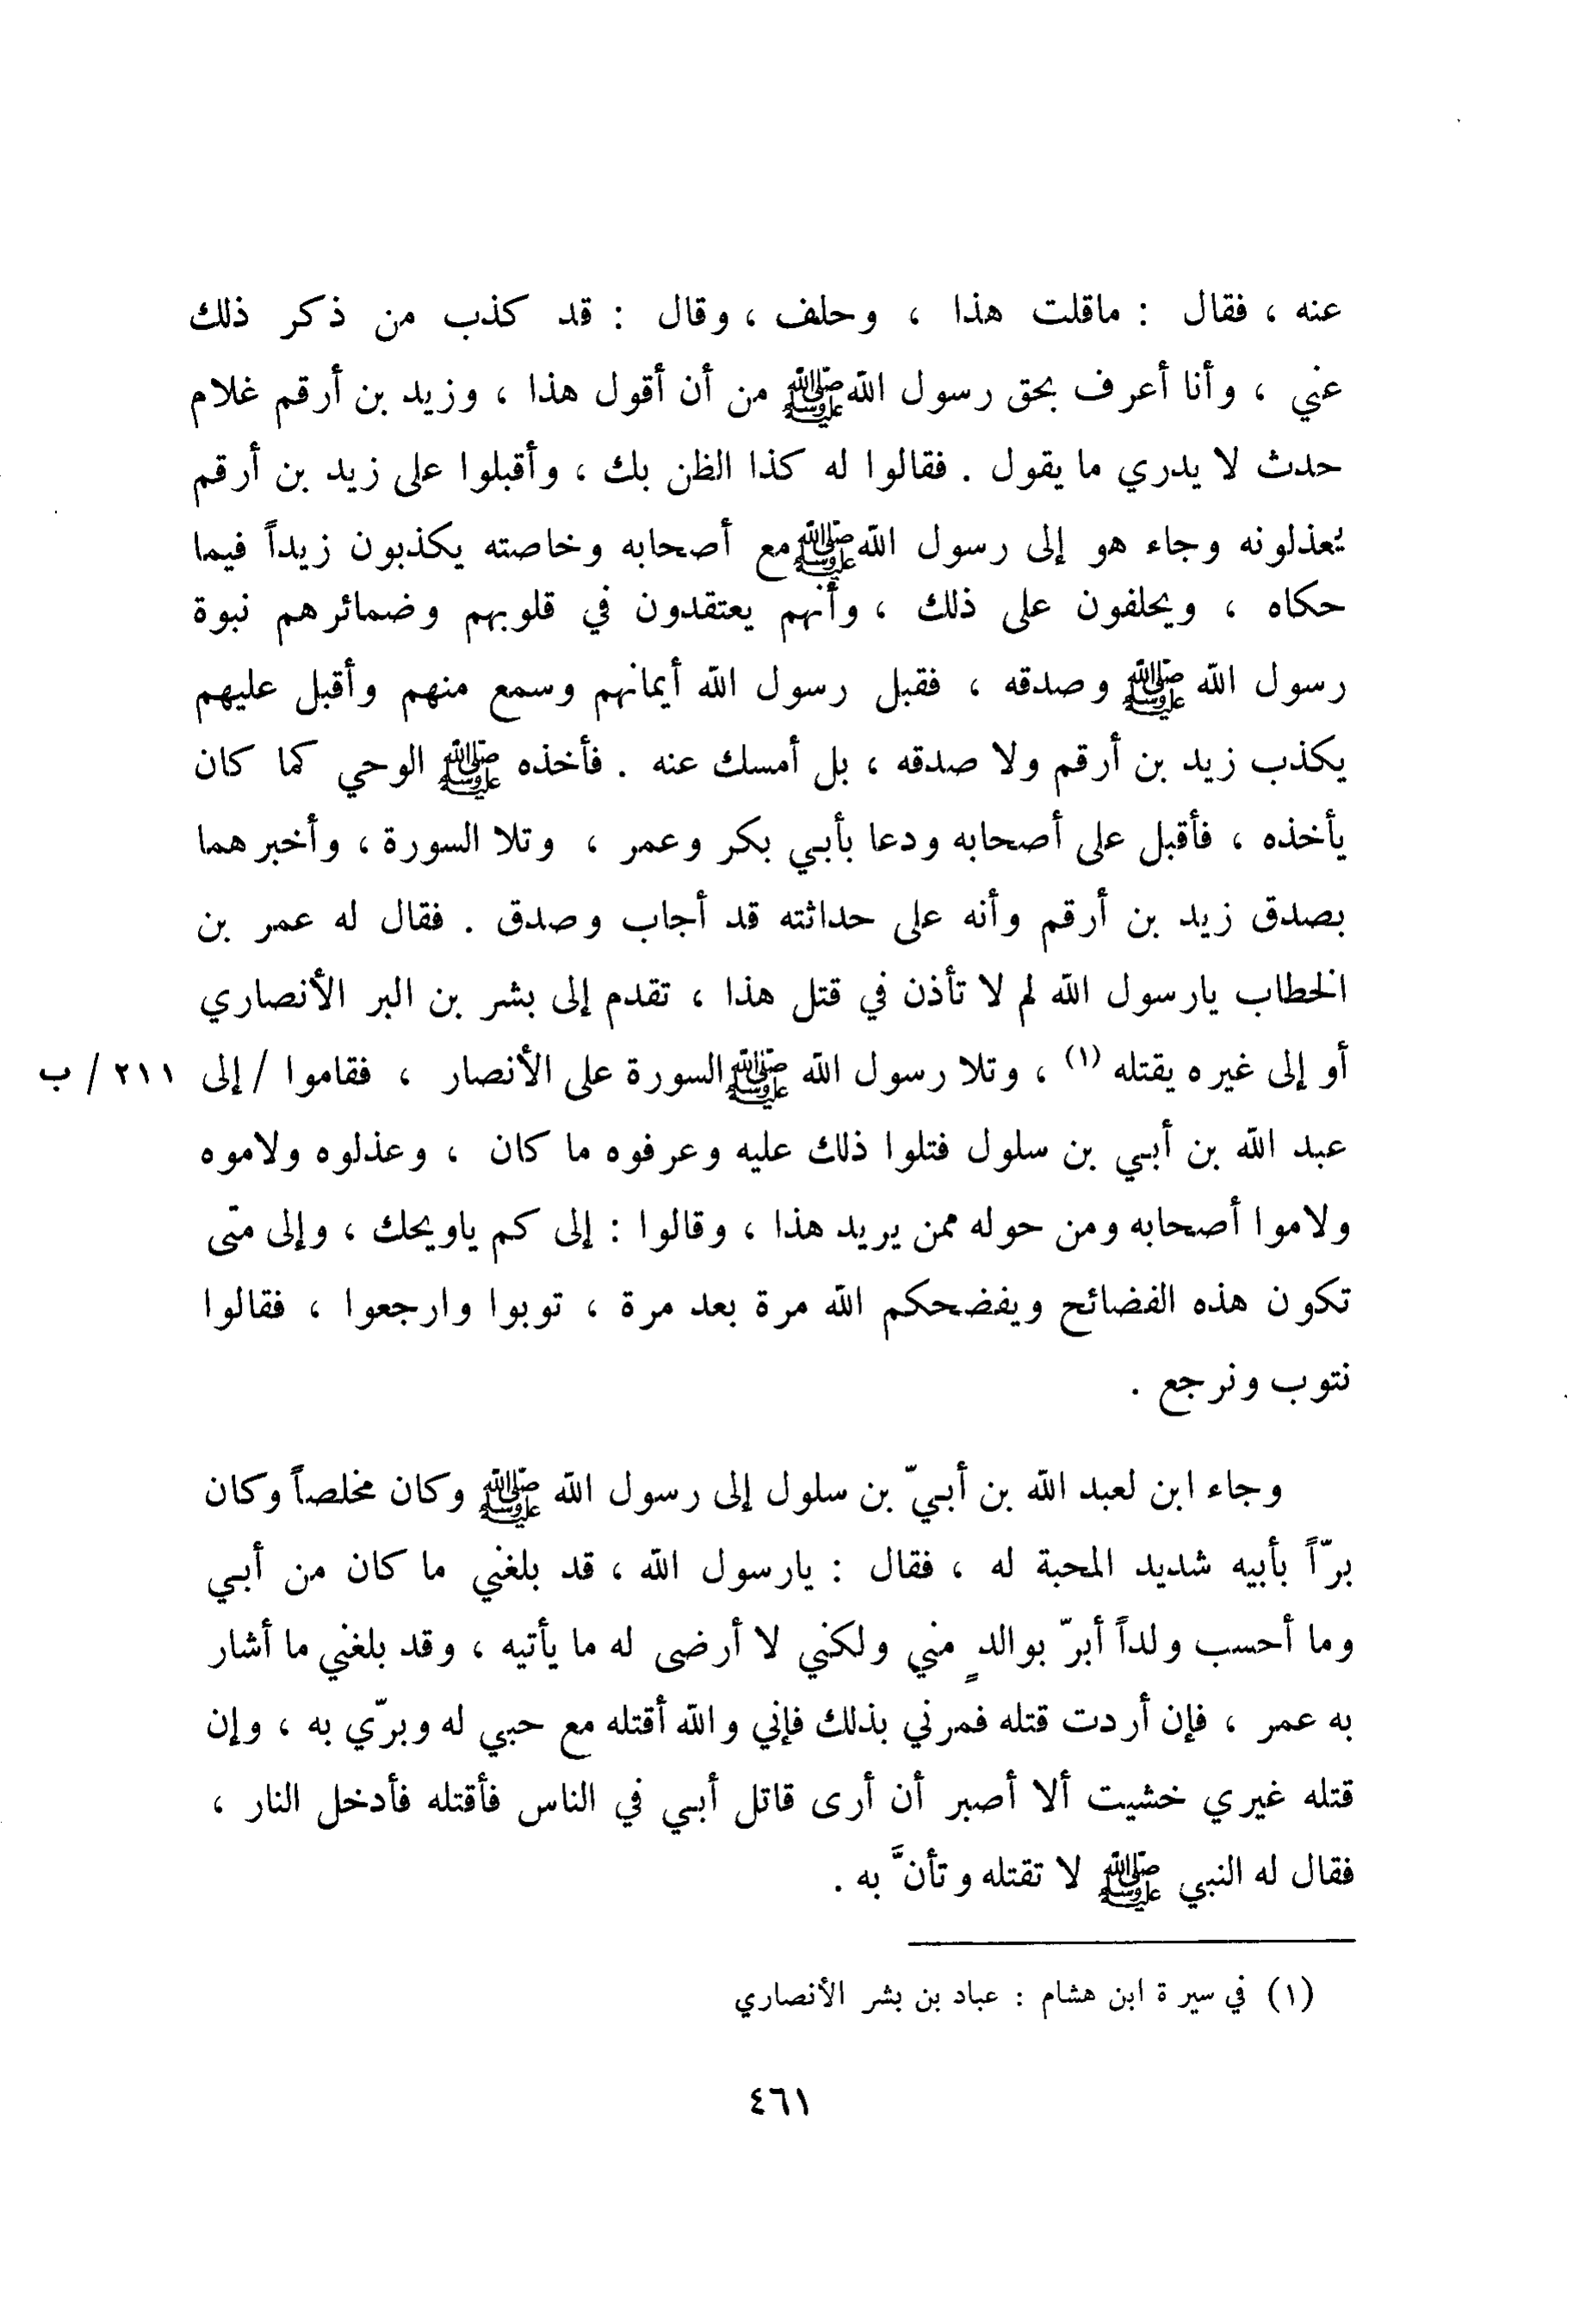 عنه ، فقال : ماقلت هذا ، وحلف ، وقال : قد كذب من ذكر ذلك
عني ، وأنا أعرف بحق رسول الله ﷺ من أن أقول هذا ، وزيد بن أرقم غلام
حدث لا يدري ما يقول . فقالوا له كذا الظن بك ، وأقبلوا على زيد بن أرقم
يعذلونه وجاء هو إلى رسول الله ﷺ مع أصحابه وخاصته يكذبون زيداً فيما
حكاه ، ويحلفون على ذلك ، وأنهم يعتقدون في قلوبهم وضمائرهم نبوة
رسول الله ﷺ وصدقه ، فقبل رسول الله أيمانهم وسمع منهم وأقبل عليهم
يكذب زيد بن أرقم ولا صدقه ، بل أمسك عنه . فأخذه ﷺ الوحي كما كان
يأخذه ، فأقبل على أصحابه ودعا بأبي بكر وعمر ، وتلا السورة ، وأخبرهما
بصدق زيد بن أرقم وأنه على حداثته قد أجاب وصدق . فقال له عمر بن
الخطاب يارسول الله لم لا تأذن في قتل هذا ، تقدم إلى بشر بن البر الأنصاري
أو إلى غيره يقتله (١) ، وتلا رسول الله ﷺ السورة على الأنصار ، فقاموا / إلى ٢١١ / ب
عبد الله بن أبي بن سلول فتلوا ذلك عليه وعرفوه ما كان ، وعذلوه ولاموه
ولاموا أصحابه ومن حوله ممن يريد هذا ، وقالوا : إلى كم ياويحك ، وإلى متى
تكون هذه الفضائح ويفضحكم الله مرة بعد مرة ، توبوا وارجعوا ، فقالوا
نتوب ونرجع .
وجاء ابن لعبد الله بن أبيّ بن سلول إلى رسول الله ﷺ وكان مخلصاً وكان
برّاً بأبيه شديد المحبة له ، فقال : يارسول الله ، قد بلغني ما كان من أبي
وما أحسب ولداً أبرّ بوالدٍ مني ولكني لا أرضى له ما يأتيه ، وقد بلغني ما أشار
به عمر ، فإن أردت قتله فمرني بذلك فإني والله أقتله مع حبي له وبرّي به ، وإن
قتله غيري خشيت ألا أصبر أن أرى قاتل أبي في الناس فأقتله فأدخل النار ،
فقال له النبي ﷺ لا تقتله وتأنَّ به .
(١) في سيرة ابن هشام : عباد بن بشر الأنصاري
٤٦١